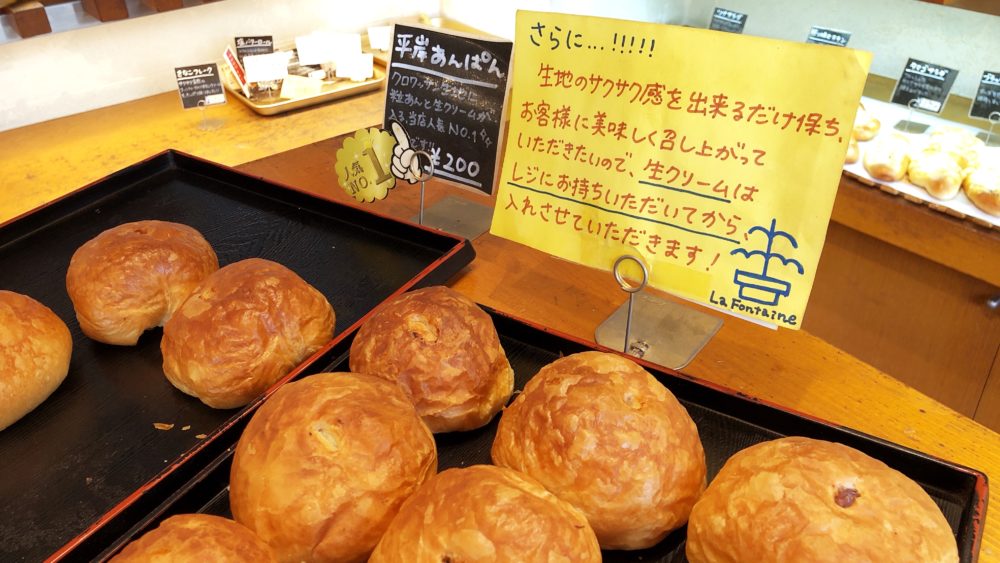 平岸あんぱん
クロワッサン生地に
粒あんと生クリームが、
入る、当店人気NO.1☆
です!!
¥200
人気
NO.1
さらに…!!!!!
生地のサクサク感を出来るだけ保ち、
お客様に美味しく召し上がって
いただきたいので、生クリームは
レジにお持ちいただいてから、
入れさせていただきます!
La Fontaine
きなこフレーク